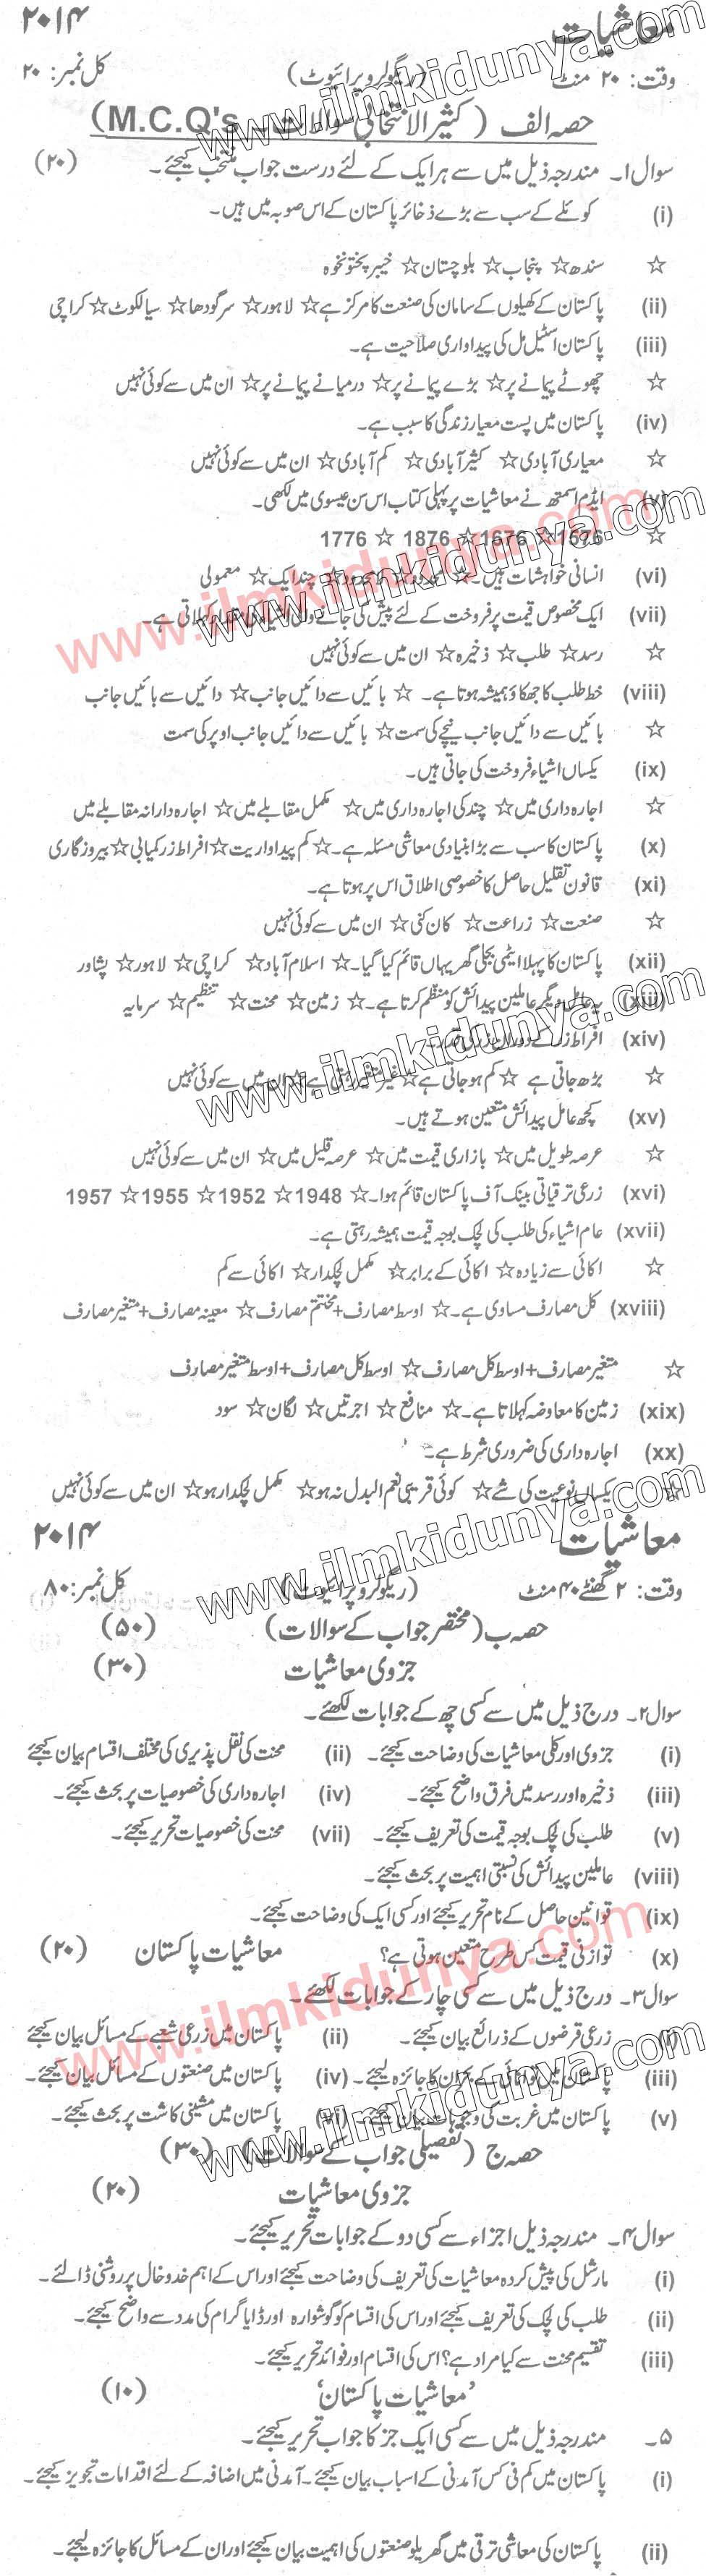 معاشیات ۲۰۱۴
وقت: ۲۰ منٹ (ریگولر و پرائیوٹ) کل نمبر: ۲۰
حصہ الف (کثیر الانتخابی سوالات - M.C.Q's)
سوال ۱۔ مندرجہ ذیل میں سے ہر ایک کے لئے درست جواب منتخب کیجئے۔ (۲۰)
(i) کوئلے کے سب سے بڑے ذخائر پاکستان کے اس صوبہ میں ہیں۔
☆ سندھ ☆ پنجاب ☆ بلوچستان ☆ خیبر پختونخوہ
(ii) پاکستان کے کھیلوں کے سامان کی صنعت کا مرکز ہے ☆ لاہور ☆ سرگودھا ☆ سیالکوٹ ☆ کراچی
(iii) پاکستان اسٹیل مل کی پیداواری صلاحیت ہے۔
☆ چھوٹے پیمانے پر ☆ بڑے پیمانے پر ☆ درمیانے پیمانے پر ☆ ان میں سے کوئی نہیں
(iv) پاکستان میں پست معیار زندگی کا سبب ہے۔
☆ معیاری آبادی ☆ کثیر آبادی ☆ کم آبادی ☆ ان میں سے کوئی نہیں
(v) ایڈم اسمتھ نے معاشیات پر پہلی کتاب اس سن عیسوی میں لکھی۔
☆ 1576 ☆ 1676 ☆ 1876 ☆ 1776
(vi) انسانی خواہشات ہیں۔ ☆ محدود ☆ لامحدود ☆ چند ایک ☆ معمولی
(vii) ایک مخصوص قیمت پر فروخت کے لئے پیش کی جانے والی اشیاء کی مقدار کہلاتی ہے۔
☆ رسد ☆ طلب ☆ ذخیرہ ☆ ان میں سے کوئی نہیں
(viii) خط طلب کا جھکاؤ ہمیشہ ہوتا ہے۔ ☆ بائیں سے دائیں جانب ☆ دائیں سے بائیں جانب
☆ بائیں سے دائیں جانب نیچے کی سمت ☆ بائیں سے دائیں جانب اوپر کی سمت
(ix) یکساں اشیاء فروخت کی جاتی ہیں۔
☆ اجارہ داری میں ☆ چند کی اجارہ داری میں ☆ مکمل مقابلے میں ☆ اجارہ دارانہ مقابلے میں
(x) پاکستان کا سب سے بڑا بنیادی معاشی مسئلہ ہے۔ ☆ کم پیداواریت ☆ افراط زر کمیابی ☆ بیروزگاری
(xi) قانون تقلیل حاصل کا خصوصی اطلاق اس پر ہوتا ہے۔
☆ صنعت ☆ زراعت ☆ کان کنی ☆ ان میں سے کوئی نہیں
(xii) پاکستان کا پہلا ایٹمی بجلی گھر یہاں قائم کیا گیا۔ ☆ اسلام آباد ☆ کراچی ☆ لاہور ☆ پشاور
(xiii) یہ عامل دیگر عاملین پیدائش کو منظم کرتا ہے۔ ☆ زمین ☆ محنت ☆ تنظیم ☆ سرمایہ
(xiv) افراط زر کے دوران زر کی قدر۔
☆ بڑھ جاتی ہے ☆ کم ہو جاتی ہے ☆ غیر متغیر رہتی ہے ☆ ان میں سے کوئی نہیں
(xv) کچھ عامل پیدائش متعین ہوتے ہیں۔
☆ عرصہ طویل میں ☆ بازاری قیمت میں ☆ عرصہ قلیل میں ☆ ان میں سے کوئی نہیں
(xvi) زرعی ترقیاتی بینک آف پاکستان قائم ہوا۔ ☆ 1948 ☆ 1952 ☆ 1955 ☆ 1957
(xvii) عام اشیاء کی طلب کی لچک بوجہ قیمت ہمیشہ رہتی ہے۔
☆ اکائی سے زیادہ ☆ اکائی کے برابر ☆ مکمل لچکدار ☆ اکائی سے کم
(xviii) کل مصارف مساوی ہے۔ ☆ اوسط مصارف + مختتم مصارف ☆ معینہ مصارف + متغیر مصارف
☆ متغیر مصارف + اوسط کل مصارف ☆ اوسط کل مصارف + اوسط متغیر مصارف
(xix) زمین کا معاوضہ کہلاتا ہے۔ ☆ منافع ☆ اجرتیں ☆ لگان ☆ سود
(xx) اجارہ داری کی ضروری شرط ہے۔
☆ یکساں نوعیت کی شے ☆ کوئی قریبی نعم البدل نہ ہو ☆ مکمل لچکدار ہو ☆ ان میں سے کوئی نہیں
معاشیات ۲۰۱۴
وقت: ۲ گھنٹے ۴۰ منٹ (ریگولر و پرائیوٹ) کل نمبر: ۸۰
حصہ ب (مختصر جواب کے سوالات) (۵۰)
جزوی معاشیات (۳۰)
سوال ۲۔ درج ذیل میں سے کسی چھ کے جوابات لکھئے۔
(i) جزوی اور کلی معاشیات کی وضاحت کیجئے۔ (ii) محنت کی نقل پذیری کی مختلف اقسام بیان کیجئے
(iii) ذخیرہ اور رسد میں فرق واضح کیجئے۔ (iv) اجارہ داری کی خصوصیات پر بحث کیجئے۔
(v) طلب کی لچک بوجہ قیمت کی تعریف کیجئے۔ (vii) محنت کی خصوصیات تحریر کیجئے۔
(viii) عاملین پیدائش کی نسبتی اہمیت پر بحث کیجئے۔
(ix) قوانین حاصل کے نام تحریر کیجئے اور کسی ایک کی وضاحت کیجئے۔
(x) توازنی قیمت کس طرح متعین ہوتی ہے؟ معاشیات پاکستان (۲۰)
سوال ۳۔ درج ذیل میں سے کسی چار کے جوابات لکھئے۔
(i) زرعی قرضوں کے ذرائع بیان کیجئے۔ (ii) پاکستان میں زرعی شعبے کے مسائل بیان کیجئے
(iii) پاکستان میں توانائی کے بحران کا جائزہ لیجئے۔ (iv) پاکستان میں صنعتوں کے مسائل بیان کیجئے۔
(v) پاکستان میں غربت کی وجوہات بیان کیجئے۔ (vi) پاکستان میں مشینی کاشت پر بحث کیجئے۔
حصہ ج (تفصیلی جواب کے سوالات) (۳۰)
جزوی معاشیات (۲۰)
سوال ۴۔ مندرجہ ذیل اجزاء سے کسی دو کے جوابات تحریر کیجئے۔
(i) مارشل کی پیش کردہ معاشیات کی تعریف کی وضاحت کیجئے اور اس کے اہم خدوخال پر روشنی ڈالئے۔
(ii) طلب کی لچک کی تعریف کیجئے اور اس کی اقسام کو گوشوارہ اور ڈایاگرام کی مدد سے واضح کیجئے۔
(iii) تقسیم محنت سے کیا مراد ہے؟ اس کی اقسام اور فوائد تحریر کیجئے۔
'معاشیات پاکستان' (۱۰)
۵۔ مندرجہ ذیل میں سے کسی ایک جز کا جواب تحریر کیجئے۔
(i) پاکستان میں کم فی کس آمدنی کے اسباب بیان کیجئے۔ آمدنی میں اضافہ کے لئے اقدامات تجویز کیجئے۔
(ii) پاکستان کی معاشی ترقی میں گھریلو صنعتوں کی اہمیت بیان کیجئے اور ان کے مسائل کا جائزہ لیجئے۔
www.ilmkidunya.com
www.ilmkidunya.com
www.ilmkidunya.com
www.ilmkidunya.com
www.ilmkidunya.com
www.ilmkidunya.com
www.ilmkidunya.com